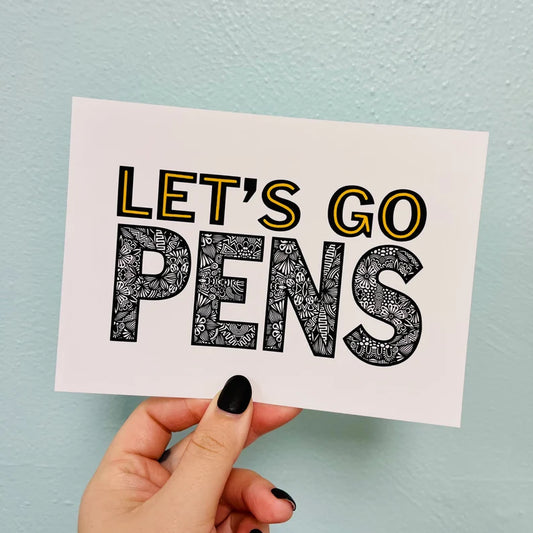 LET'S GO
PENS